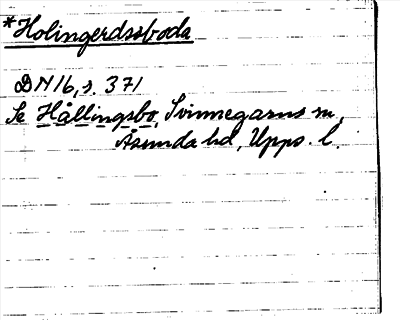 *Holingerdssboda
DN 16, s. 371
Se Hållingsbo, Svinnegarns sn,
Åsunda hd, Upps. l.